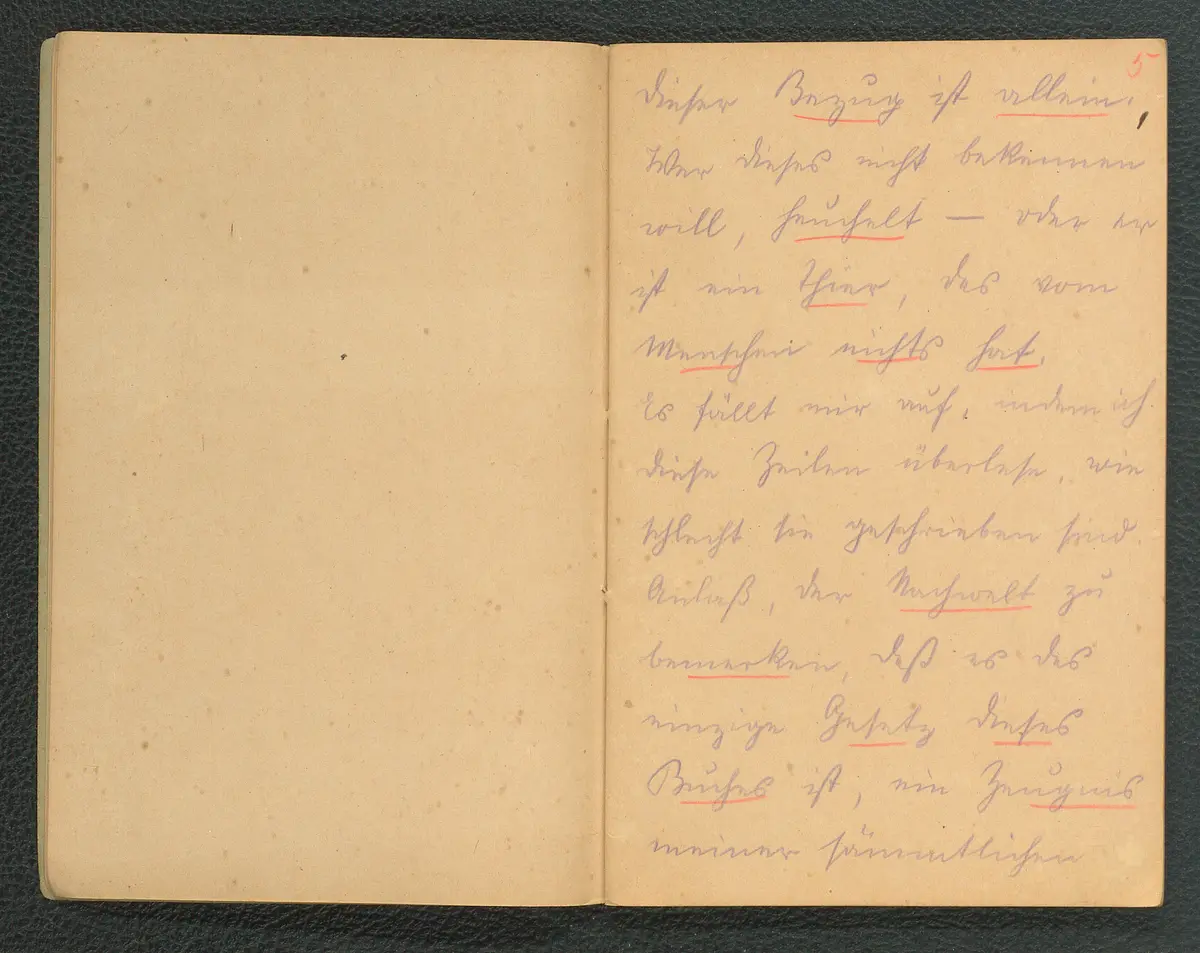 5
dieser Bezug ist allein.
Wer dieses nicht bekennen
will, heuchelt — oder er
ist ein Thier, das vom
Menschen nichts hat.
Es fällt mir auf, indem ich
diese Zeilen überlese, wie
schlecht sie geschrieben sind.
Anlaß, der Nachwelt zu
bemerken, daß es das
einzige Gesetz dieses
Buches ist, ein Zeugnis
meiner sämmtlichen